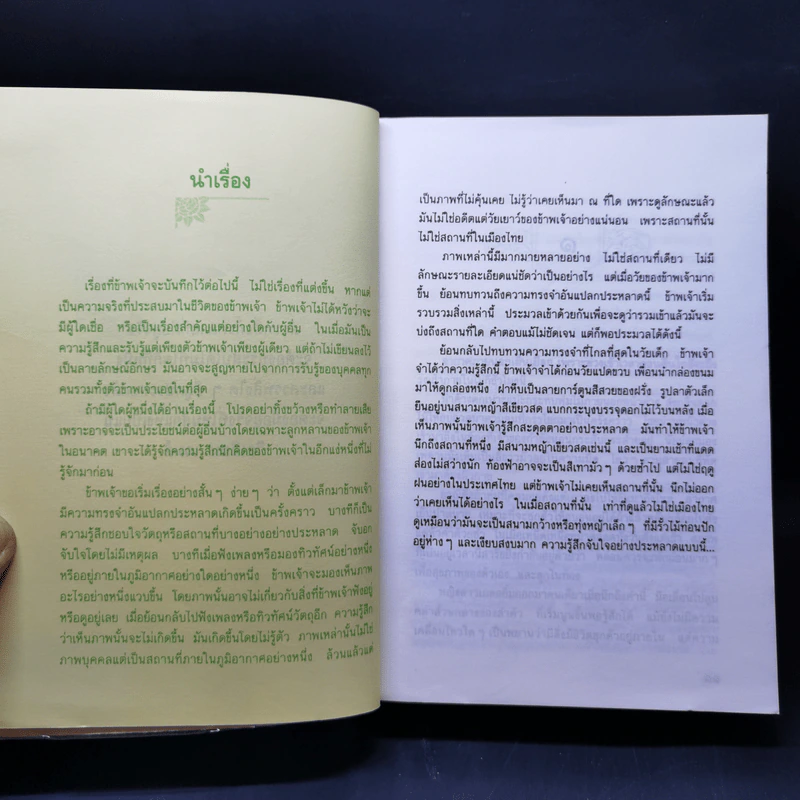 นำเรื่อง
เรื่องที่ข้าพเจ้าจะบันทึกไว้ต่อไปนี้ ไม่ใช่เรื่องที่แต่งขึ้น หากแต่
เป็นความจริงที่ประสบมาในชีวิตของข้าพเจ้า ข้าพเจ้าไม่ได้หวังว่าจะ
มีผู้ใดเชื่อ หรือเป็นเรื่องสำคัญแต่อย่างใดกับผู้อื่น ในเมื่อมันเป็น
ความรู้สึกและรับรู้แต่เพียงตัวข้าพเจ้าเพียงผู้เดียว แต่ถ้าไม่เขียนลงไว้
เป็นลายลักษณ์อักษร มันอาจจะสูญหายไปจากการรับรู้ของบุคคลทุก
คนรวมทั้งตัวข้าพเจ้าเองในที่สุด
ถ้ามีผู้ใดผู้หนึ่งได้อ่านเรื่องนี้ โปรดอย่าทิ้งขว้างหรือทำลายเสีย
เพราะอาจจะเป็นประโยชน์ต่อผู้อื่นบ้างโดยเฉพาะลูกหลานของข้าพเจ้า
ในอนาคต เขาจะได้รู้จักความรู้สึกนึกคิดของข้าพเจ้าในอีกแง่หนึ่งที่ไม่
รู้จักมาก่อน
ข้าพเจ้าขอเริ่มเรื่องอย่างสั้นๆ ง่ายๆ ว่า ตั้งแต่เล็กมาข้าพเจ้า
มีความทรงจำอันแปลกประหลาดเกิดขึ้นเป็นครั้งคราว บางทีก็เป็น
ความรู้สึกชอบใจวัตถุหรือสถานที่บางอย่างอย่างประหลาด จับอก
จับใจโดยไม่มีเหตุผล บางทีเมื่อฟังเพลงหรือมองทิวทัศน์อย่างหนึ่ง
หรืออยู่ภายในภูมิอากาศอย่างใดอย่างหนึ่ง ข้าพเจ้าจะมองเห็นภาพ
อะไรอย่างหนึ่งแวบขึ้น โดยภาพนั้นอาจไม่เกี่ยวกับสิ่งที่ข้าพเจ้าฟังอยู่
หรือดูอยู่เลย เมื่อย้อนกลับไปฟังเพลงหรือทิวทัศน์วัตถุอีก ความรู้สึก
ว่าเห็นภาพนั้นจะไม่เกิดขึ้น มันเกิดขึ้นโดยไม่รู้ตัว ภาพเหล่านั้นไม่ใช่
ภาพบุคคลแต่เป็นสถานที่ภายในภูมิอากาศอย่างหนึ่ง ล้วนแล้วแต่
เป็นภาพที่ไม่คุ้นเคย ไม่รู้ว่าเคยเห็นมา ณ ที่ใด เพราะดูลักษณะแล้ว
มันไม่ใช่อดีตแต่วัยเยาว์ของข้าพเจ้าอย่างแน่นอน เพราะสถานที่นั้น
ไม่ใช่สถานที่ในเมืองไทย
ภาพเหล่านี้มีมากมายหลายอย่าง ไม่ใช่สถานที่เดียว ไม่มี
ลักษณะรายละเอียดแน่ชัดว่าเป็นอย่างไร แต่เมื่อวัยของข้าพเจ้ามาก
ขึ้น ย้อนทบทวนถึงความทรงจำอันแปลกประหลาดนี้ ข้าพเจ้าเริ่ม
รวบรวมสิ่งเหล่านี้ ประมวลเข้าด้วยกันเพื่อจะดูว่ารวมเข้าแล้วมันจะ
บ่งถึงสถานที่ใด คำตอบแม้ไม่ชัดเจน แต่ก็พอประมวลได้ดังนี้
ย้อนกลับไปทบทวนความทรงจำที่ไกลที่สุดในวัยเด็ก ข้าพเจ้า
จำได้ว่าความรู้สึกนี้ ข้าพเจ้าจำได้ก่อนวัยแปดขวบ เพื่อนนำกล่องขนม
มาให้ดูกล่องหนึ่ง ฝาหีบเป็นลายการ์ตูนสีสวยของฝรั่ง รูปลาตัวเล็ก
ยืนอยู่บนสนามหญ้าสีเขียวสด แบกกระบุงบรรจุดอกไม้ไว้บนหลัง เมื่อ
เห็นภาพนั้นข้าพเจ้ารู้สึกสะดุดตาอย่างประหลาด มันทำให้ข้าพเจ้า
นึกถึงสถานที่หนึ่ง มีสนามหญ้าเขียวสดเช่นนี้ และเป็นยามเช้าที่แดด
ส่องไม่สว่างนัก ท้องฟ้าอาจจะเป็นสีเทามัวๆ ด้วยซ้ำไป แต่ไม่ใช่ฤดู
ฝนอย่างในประเทศไทย แต่ข้าพเจ้าไม่เคยเห็นสถานที่นั้น นึกไม่ออก
ว่าเคยเห็นได้อย่างไร ในเมื่อสถานที่นั้น เท่าที่ดูแล้วไม่ใช่เมืองไทย
ดูเหมือนว่ามันจะเป็นสนามกว้างหรือทุ่งหญ้าเล็กๆ ที่มีรั้วไม้ท่อนปัก
อยู่ห่างๆ และเงียบสงบมาก ความรู้สึกจับใจอย่างประหลาดแบบนี้...